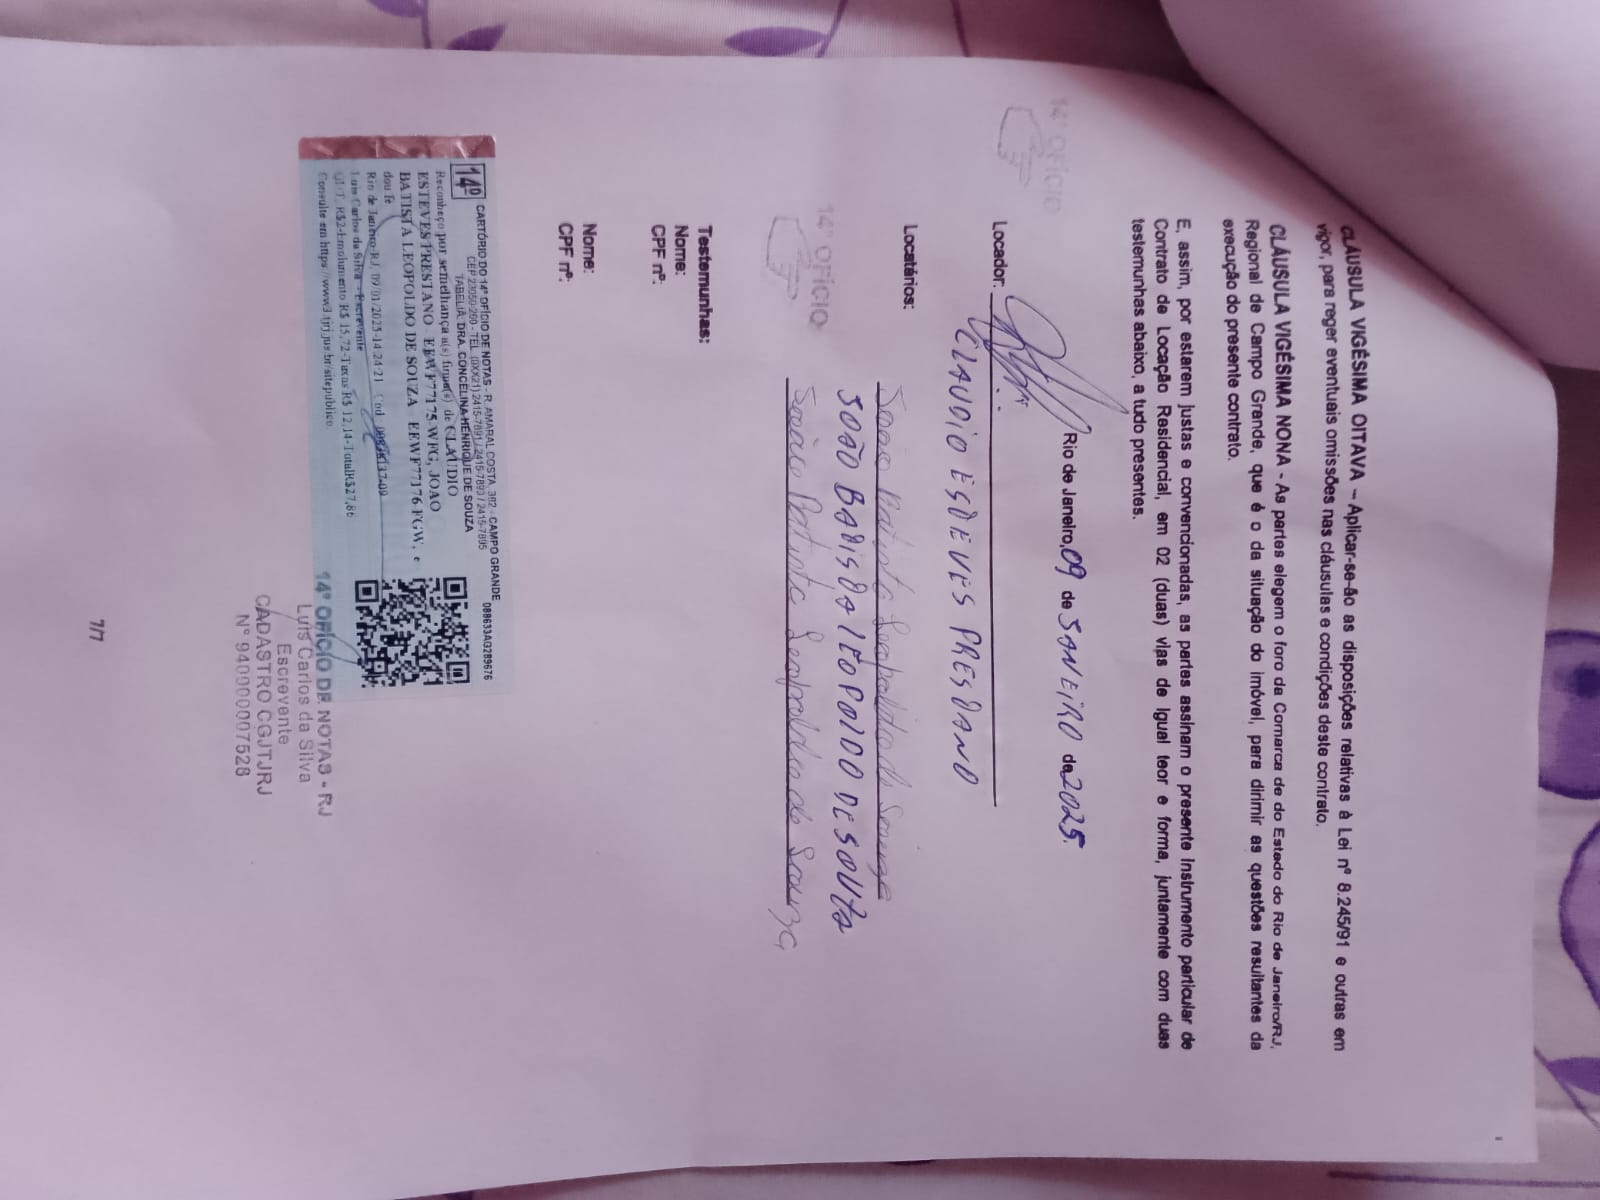 CLÁUSULA VIGÉSIMA OITAVA – Aplicar-se-ão as disposições relativas à Lei nº 8.245/91 e outras em
vigor, para reger eventuais omissões nas cláusulas e condições deste contrato.
CLÁUSULA VIGÉSIMA NONA - As partes elegem o foro da Comarca de do Estado do Rio de Janeiro/RJ,
Regional de Campo Grande, que é o da situação do imóvel, para dirimir as questões resultantes da
execução do presente contrato.
E, assim, por estarem justas e convencionadas, as partes assinam o presente instrumento particular de
Contrato de Locação Residencial, em 02 (duas) vias de igual teor e forma, juntamente com duas
testemunhas abaixo, a tudo presentes.
Rio de Janeiro, 09 de JANEIRO de 2025.
14º OFÍCIO
Locador:
CLAUDIO ESTEVES PRESTANO
Locatários:
João Batista Leopoldo de Souza
JOÃO BATISTA LEOPOLDO DE SOUZA
14º OFÍCIO
João Batista Leopoldo de Souza
Testemunhas:
Nome:
CPF nº:
Nome:
CPF nº:
14º
CARTÓRIO DO 14º OFÍCIO DE NOTAS - R. AMARAL COSTA, 382 - CAMPO GRANDE
CEP 23050-260 - TEL. (0XX21) 2415-7891 / 2415-7893 / 2415-7895
TABELIÃ: DRA. CONCELINA HENRIQUE DE SOUZA
088633AG289676
Reconheço por semelhança a(s) firma(s) de CLAUDIO
ESTEVES PRESTANO - EEWF77175-WFG, JOAO
BATISTA LEOPOLDO DE SOUZA - EEWF77176-FGW, e
dou fé
Rio de Janeiro-RJ, 09/01/2025-14:24:21 Cod.
Luis Carlos da Silva - Escrevente
Emolumento R$ 15,72-Taxas R$ 12,14-TotalR$27,86
Consulte em https://www3.tjrj.jus.br/sitepublico
14º OFÍCIO DE NOTAS - RJ
Luis Carlos da Silva
Escrevente
CADASTRO CGJTJRJ
Nº 940000007528
7/7